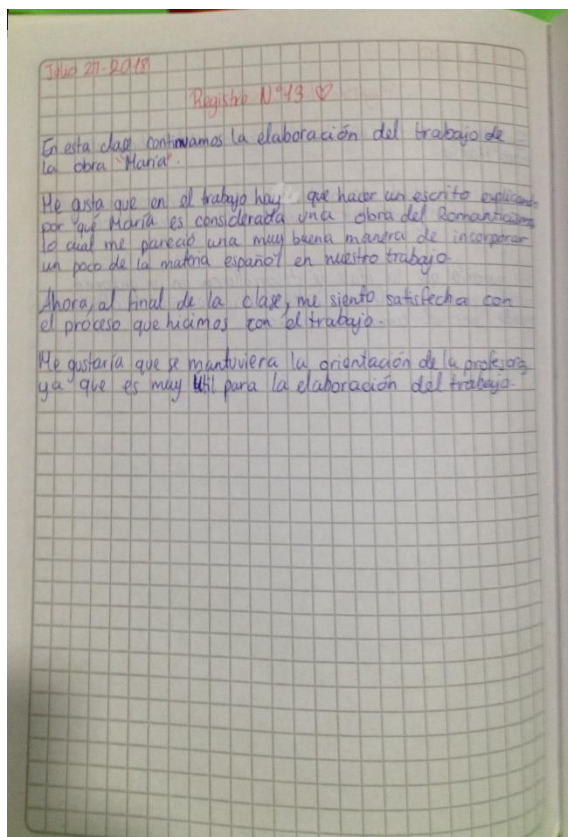 Julio 27-2018
Registro N°13 ♡
En esta clase continuamos la elaboración del trabajo de
la obra "María".
Me gusta que en el trabajo hay que hacer un escrito explicando
por qué María es considerada una obra del Romanticismo
lo cual me pareció una muy buena manera de incorporar
un poco de la materia español en nuestro trabajo.
Ahora, al final de la clase, me siento satisfecha con
el proceso que hicimos con el trabajo.
Me gustaría que se mantuviera la orientación de la profesora
ya que es muy útil para la elaboración del trabajo.